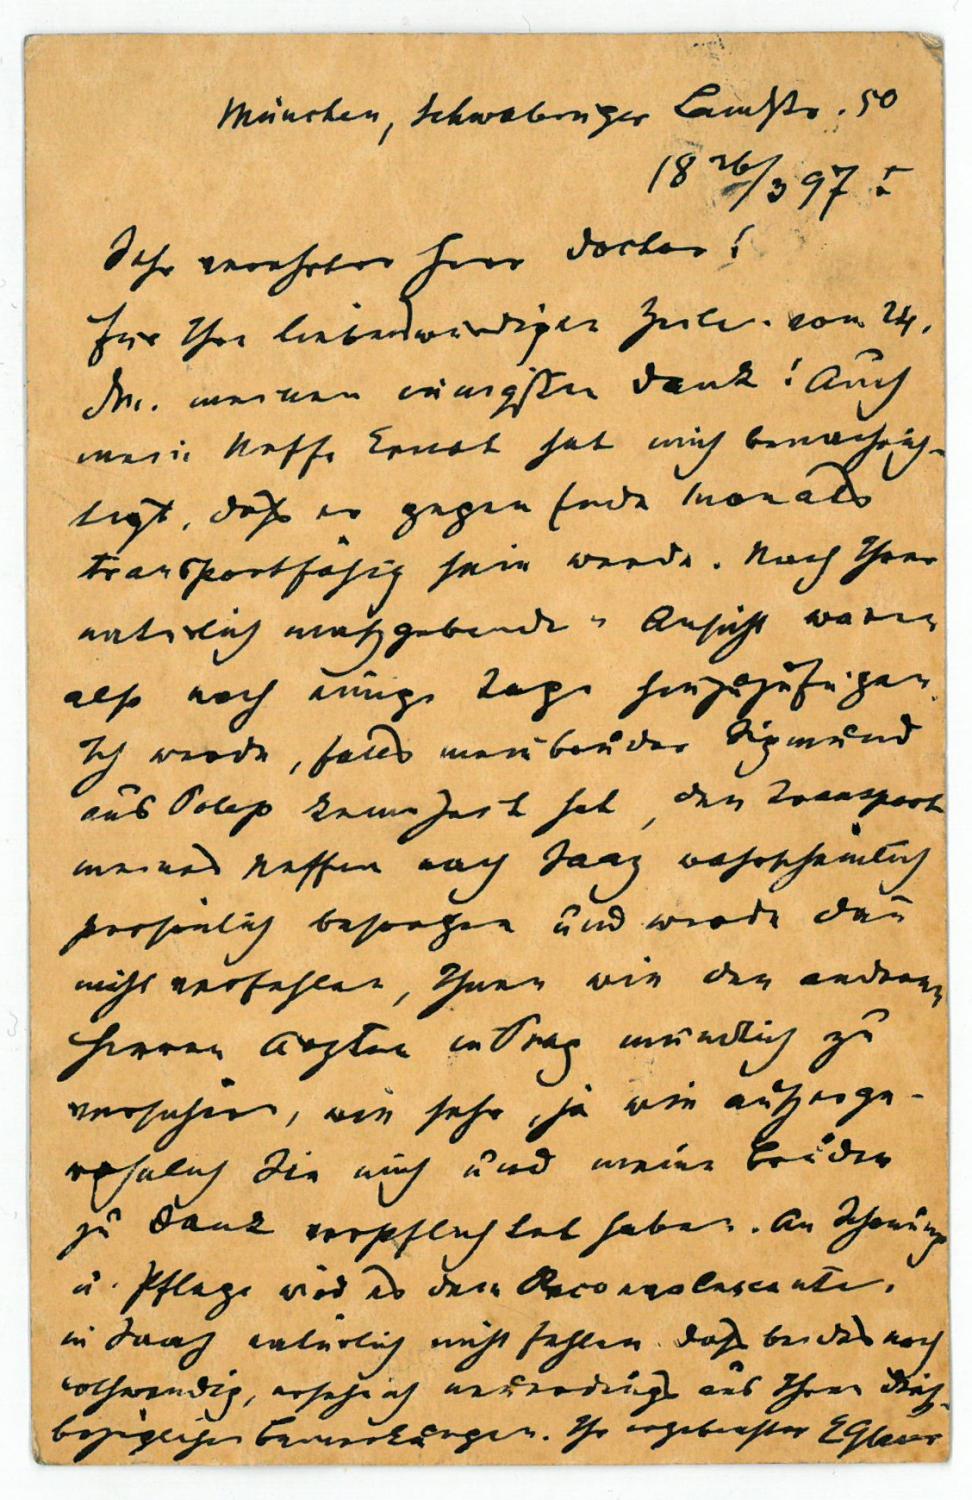 München, Schwabinger Landstr. 50
18 26/3 97.
Sehr verehrter Herr Doctor!
Für Ihre liebenswürdigen Zeilen vom 24.
ds. meinen innigsten Dank! Auch
mein Neffe Ernst hat mich benachrich-
tigt, daß er gegen Ende Monats
transportfähig sein werde. Nach Ihrer
natürlich maßgebenden Ansicht wären
also noch einige Tage hinzuzufügen.
Ich werde, falls mein Bruder Sigmund
aus keine Zeit hat, den Transport
meines Neffen nach Saaz wahrscheinlich
persönlich besorgen und werde dann
nicht verfehlen, Ihnen wie den anderen
Herren Ärzten in Prag mündlich zu
versichern, wie sehr, ja wie außerge-
wöhnlich Sie mich und meine Brüder
zu Dank verpflichtet haben. An Schonung
u. Pflege wird es dem Reconvalescenten
in Saaz natürlich nicht fehlen daß beides noch
nothwendig, ersehe ich neuerdings aus Ihren dies-
bezüglichen Bemerkungen. Ihr ergebenster